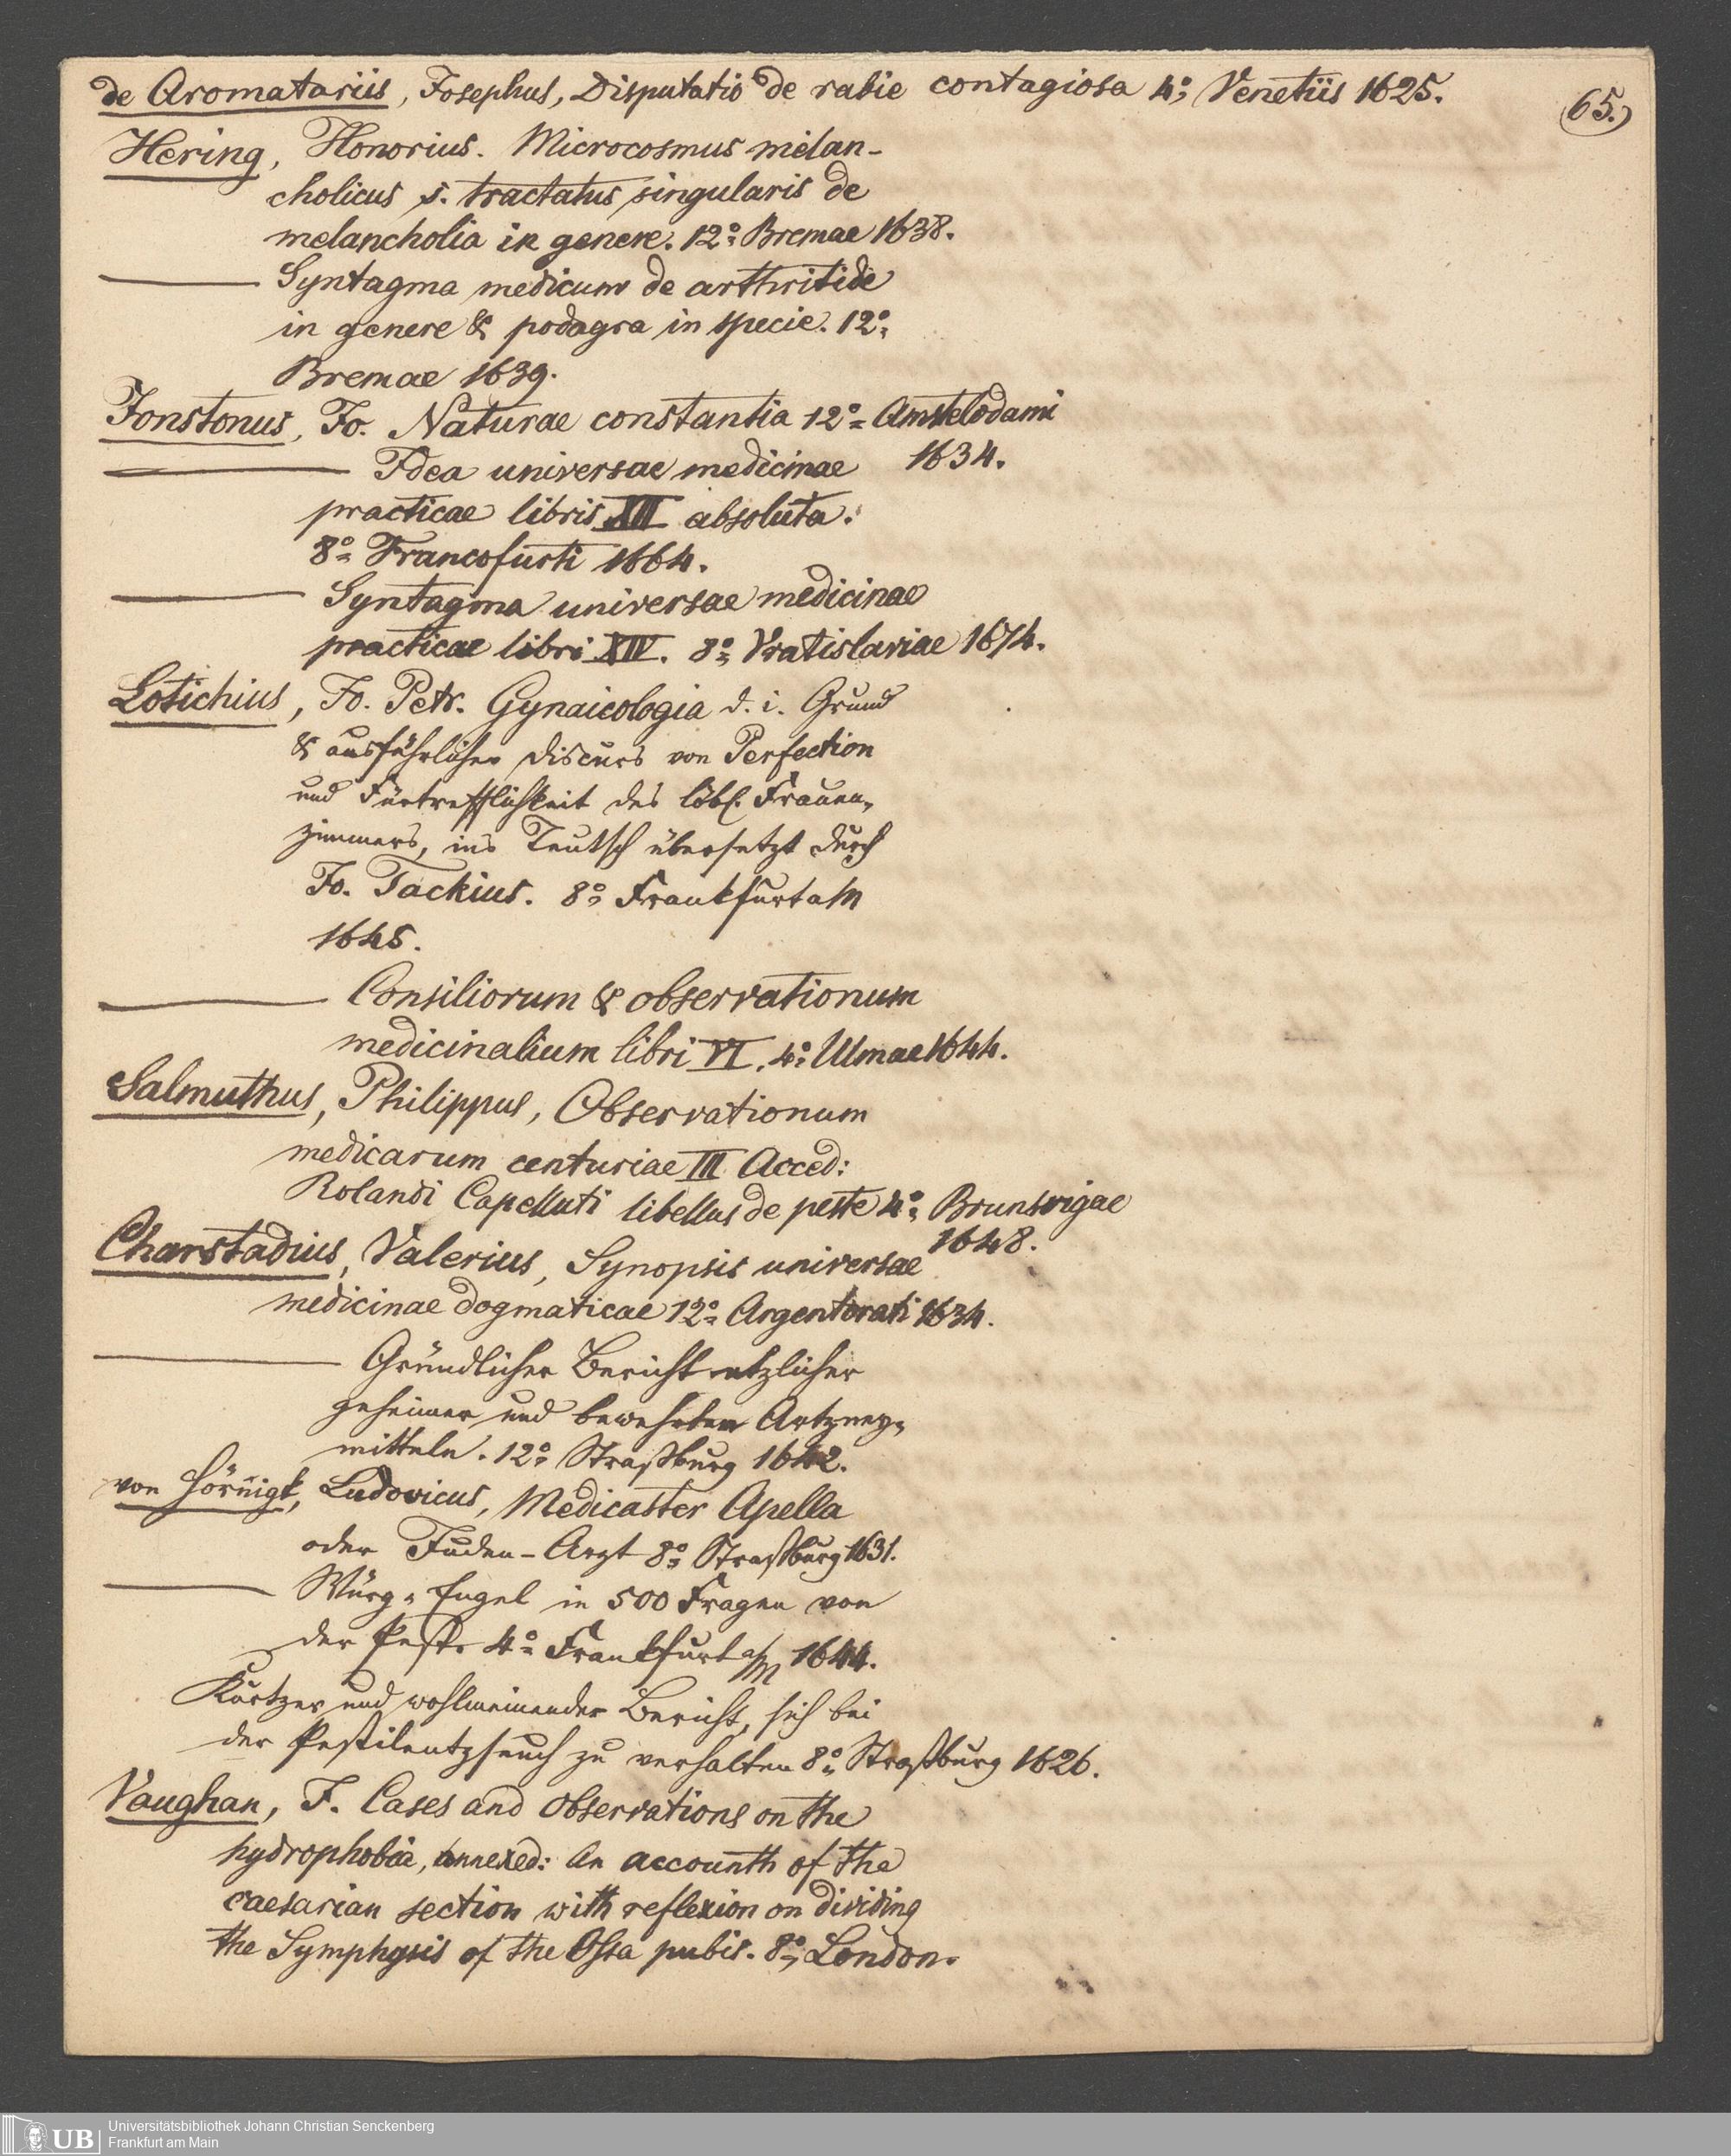 de Aromatariis, Josephus, Disputatio de rabie contagiosa 4º, Venetiis 1625.
65.)
Hering, Honorius. Microcosmus melan-
cholicus s. tractatus singularis de
melancholia in genere. 12º Bremae 1638.
——— Syntagma medicum de arthritide
in genere & podagra in specie. 12º
Bremae 1639.
Jonstonus, Jo. Naturae constantia 12º Amstelodami
1634.
——— Idea universae medicinae
practicae libris XII absoluta.
8º Francofurti 1664.
——— Syntagma universae medicinae
practicae libri XIV. 8º Vratislaviae 1674.
Lotichius, Jo. Petr. Gynaicologia d. i. Grund
& ausführlicher Discurs von Perfection
und Fürtrefflichkeit des löbl. Frauen-
zimmers, ins Teutsch übersetzt durch
Jo. Tackius. 8º Frankfurt a M
1645.
——— Consiliorum & observationum
medicinalium libri VI. 4º Ulmae 1644.
Salmuthus, Philippus, Observationum
medicarum centuriae III Acced:
Rolandi Capelluti libellus de peste 4º, Brunsvigae
1648.
Charstadius, Valerius, Synopsis universae
medicinae dogmaticae 12º Argentorati 1634.
——— Gründlicher Bericht etzlicher
geheimer und bewehrten Artzney-
mitteln. 12º Straßburg 1642.
von Hörnigk, Ludovicus, Medicaster Apella
oder Juden-Arzt 8º Straßburg 1631.
——— Würg-Engel in 500 Fragen von
der Pest. 4º Frankfurt a/M 1644.
Kurtzer und wohlmeinender Bericht, sich bei
der Pestilentzseuch zu verhalten 8º Straßburg 1626.
Vaughan, J. Cases and observations on the
hydrophobia, annexed: An accounth of the
caesarian section with reflexion on dividing
the Symphysis of the Ossa pubis. 8º, London.
UB
Universitätsbibliothek Johann Christian Senckenberg
Frankfurt am Main